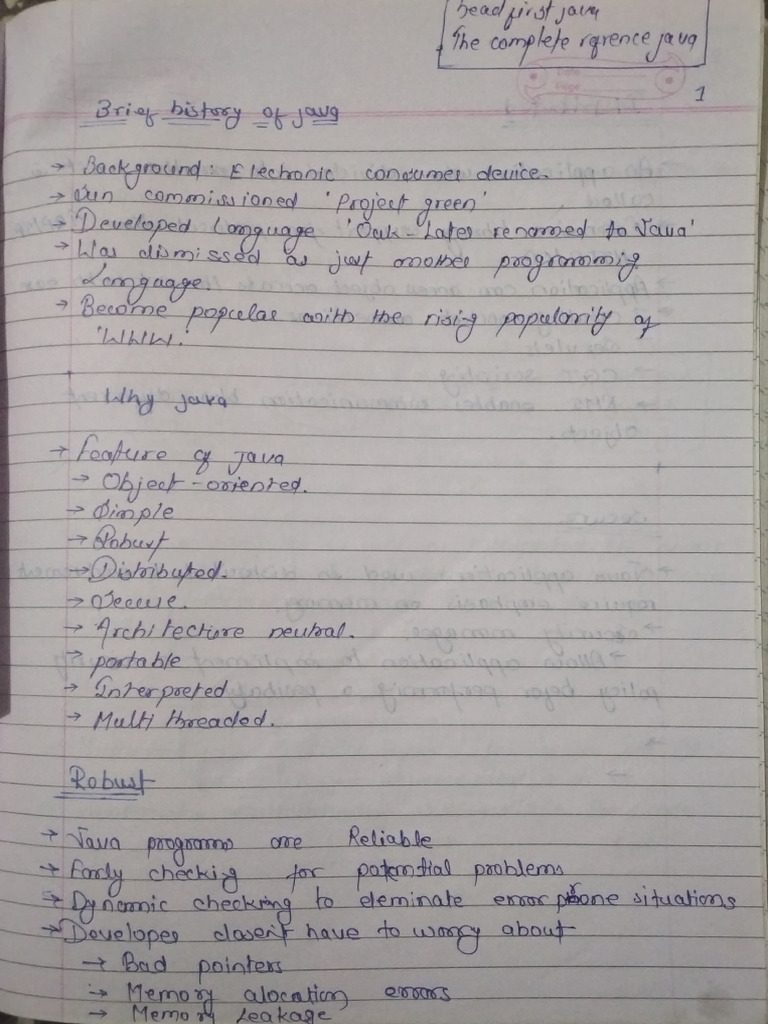 head first java
The complete rqrence java
1
Brief history of java
→ Background: Electronic consumer device.
→ Sun commissioned 'Project green'
→ Developed Language 'Oak - Later renamed to Java'
→ Was dismissed as just another programmig
Language
→ Become popular with the rising popularity of
'WWW.'
Why java
→ Feature of java
→ Object-oriented.
→ Simple
→ Robust
→ Distributed.
→ Secure.
→ Architecture neutral.
→ portable
→ Interpreted
→ Multi threaded.
Robust
→ Java programs are Reliable
→ Early checking for potential problems
→ Dynamic checking to eleminate error prone situations
→ Developer doesen't have to worry about
→ Bad pointers
→ Memory alocation errors
→ Memory Leakage